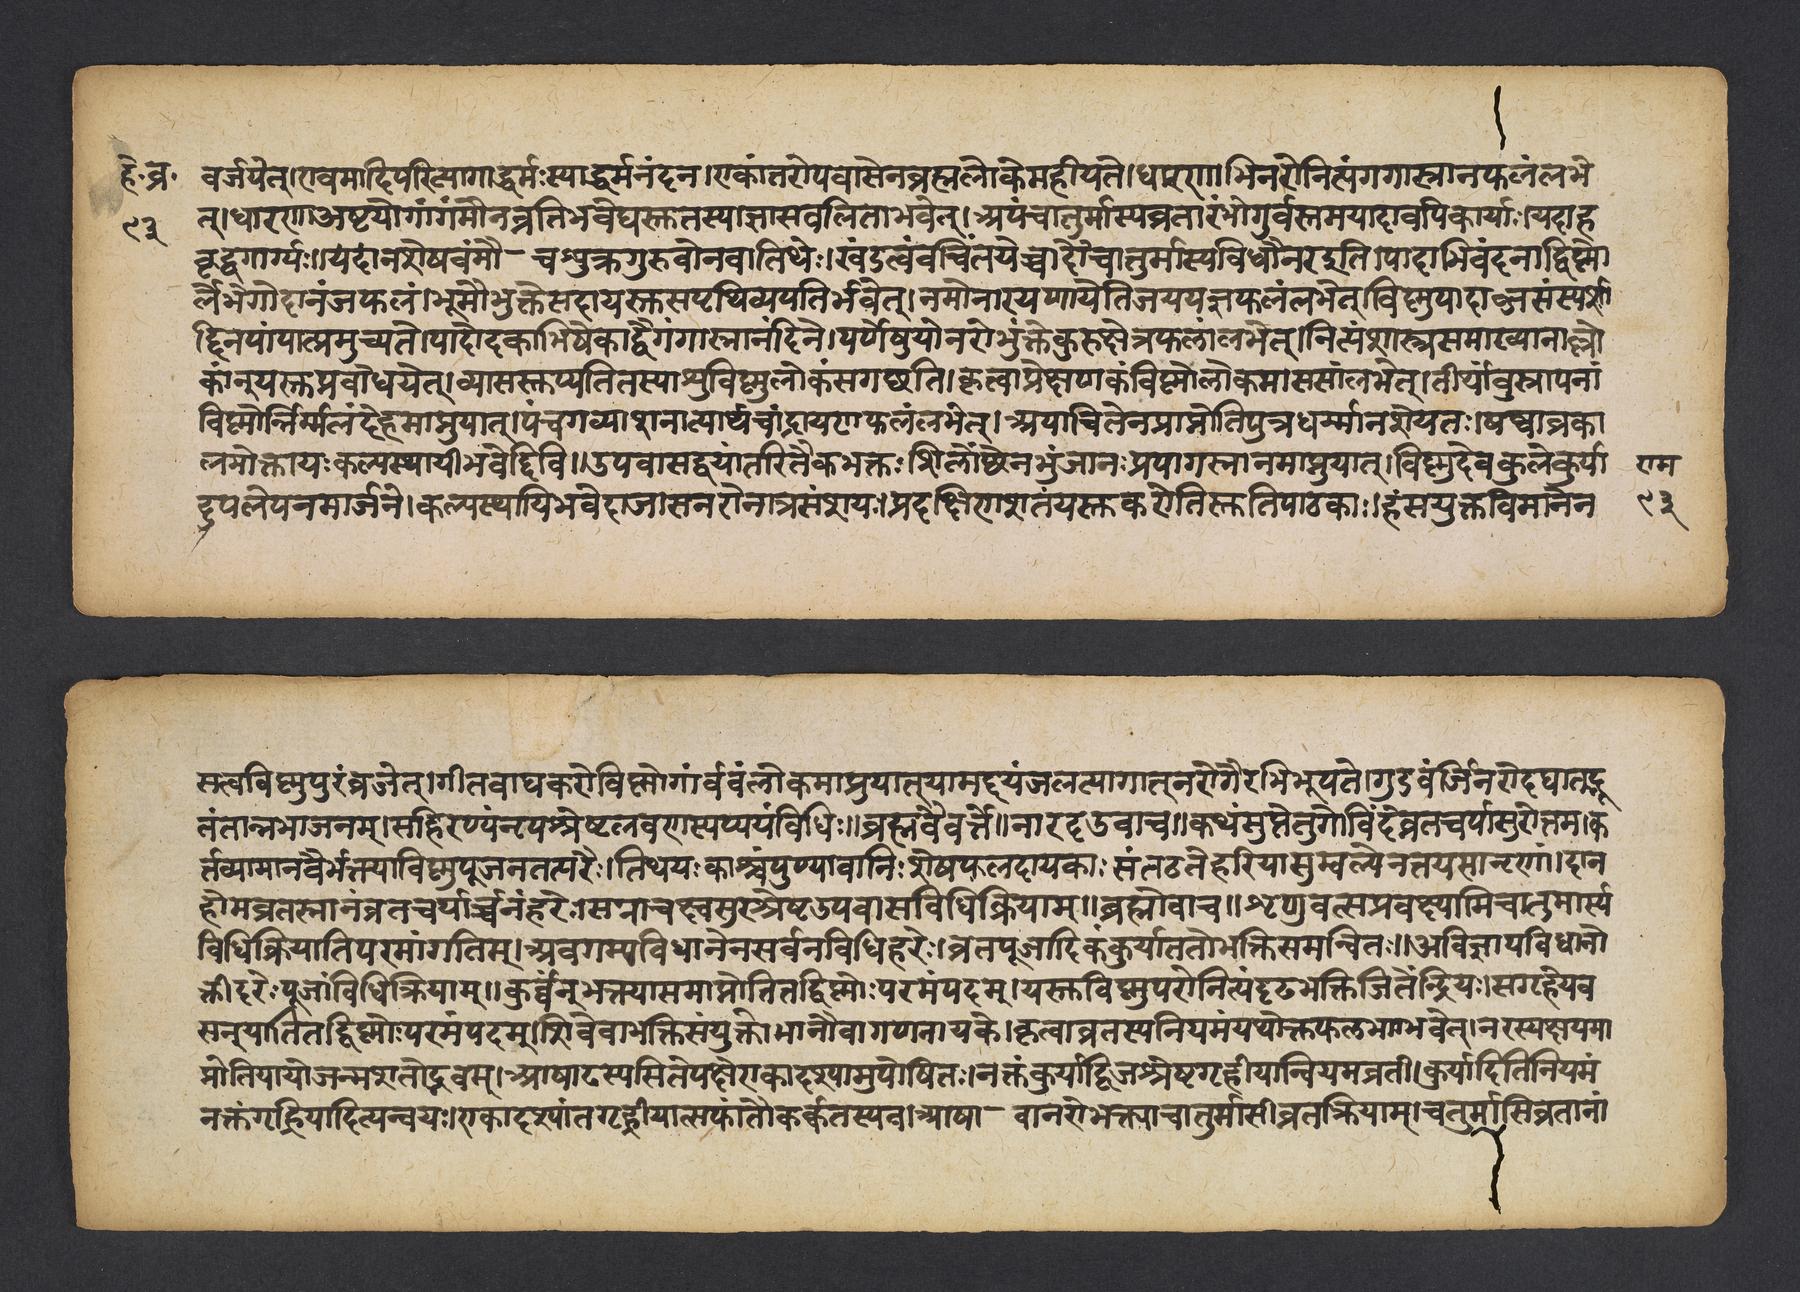 हे. व्र.
९३
वर्जयेत्।एवमादिपरित्यागाद्धर्मःस्याद्धर्मनंदन।एकांतरोपवासेनब्रह्मलोकेमहीयते।धारणा।भिनरोनित्यंगंगास्नानफलंलभे
त्।धारणाअष्टयोगांगंमौनव्रतिभवेद्यस्ततस्याज्ञास्वलिताभवेत्।अयंचातुर्मास्यव्रतारंभोगुर्वस्तमयादावपिकार्यः।यदाह
वृद्धगार्ग्यः॥यदानशैषवंमौ चशुक्रगुरुवोनवातिथेः।खंडत्वंवचिंतयेच्चादौचातुर्मास्यविधौनरइति।पादाभिवंदनाद्विष्णो
र्लभेगोदानंजफलं।भूमौभुक्तेसहायस्तसपृथिव्यपतिर्भवेत्।नमोनारायणायेतिजपयज्ञफलंलभेत्।विष्णुपादाब्जसंस्पर्शा
द्दिनपापात्प्रमुच्यते।पादोदकाभिषेकाद्वैगंगास्नानंदिने।पर्णेषुयोनरोभुंक्तेकुरुक्षेत्रफलंलभेत्।नित्यंशास्त्रसमाख्यानाल्लो
कानुयस्तप्रबोधयेत्।व्यासस्तप्यतितस्याशुविष्णुलोकंसगच्छति।कृत्वाप्रेक्षणकंविष्णोलोकमाससंलभेत्।तीर्थांबुस्नापनां
विष्णोर्न्निर्म्मलंदेहमाप्नुयात्।पंचगव्याशनात्पार्थचांद्रायणफलंलभेत्।अयाचितेनप्राप्नोतिपुत्रधर्म्मानशेयतः।षष्वान्नका
लमोक्तायःकल्पस्थायीभवेद्दिवि॥उपवासद्वयांतरितैकभक्तःशिलोंछेनभुंजानःप्रयागस्नानमाप्नुयात्।विष्णुदेवकुलेकुर्या
दुपलेपनमार्जने।कल्पस्थायिभवेद्राजासनरोनात्रसंशयः।प्रदक्षिणाशतंयस्तकरोतिस्ततिपाठकाः।हंसयुक्तविमानेन
राम
९३
सत्वविष्णुपुरंव्रजेत्।गीतवाद्यकरोविष्णोगांर्वबंलोकमाप्नुयात्यामद्वयंजलत्यागात्नरोगैरभिभूयते।गुडवंर्जिनरोदद्यातद्भू
तंताम्रभाजनम्।सहिरण्यंनृपश्रेष्टलवणस्यप्ययंविधिः॥ब्रह्मवैवर्त्ते॥नारदउवाच॥कथंसुप्तेतुगोविंदेव्रतचर्यासुरोत्तम।क
र्त्तव्यामानवैर्भत्तयाविष्णुपूजनतत्परैः।तिथयःकाश्चंपुण्यावानिःशेषफलदायकाः संतठतेहरियासुस्वल्पेनतयसानृणां।दान
होमव्रतस्नानंव्रतचर्यार्च्चनंहरेः।सत्राचक्ष्वसुरश्रेष्टउपवासविधिक्रियाम्॥ब्रह्मोवाच॥शृणुवत्सप्रवक्ष्यामिचातुमार्स्य
विधिक्रियातिपरमांगतिम्।अवगम्यविधानेनसर्वनविधिहरेः।व्रतपूजादिकंकुर्याततोभक्तिसमन्वितः॥अविज्ञायविधानो
क्तीदरेःपूजांविधिक्रियाम्॥कुर्व्वन्भक्तयासमाप्नोतितद्विष्णोःपरमंपदम्।यस्तविष्णुपरोनित्यंदृढभक्तिजितेंन्द्रियः।सगृहेयव
सन्यातितद्विष्णोःपरमंपदम्।शिवेवाभक्तिसंयुक्तोभानौवागणनायके।कृत्वाव्रतस्यनियमंयथोक्तफलभाग्भवेत्।नरस्यक्षयमा
मोतियायोजन्मशतोद्भवम्।आषाढस्यसितेपक्षेएकादश्यामुपोषितः।नक्तंकुर्याद्विजश्रेष्टगृह्णीयान्नियमव्रती।कुर्यादितिनियमं
नक्तंगृह्णियादित्यन्वयः।एकादश्यांतगृह्णीयात्सफांतौकर्कतस्यव।आषा वानरोभक्त्याचातुर्मासीव्रतक्रियाम्।चतुर्मासिव्रतानां